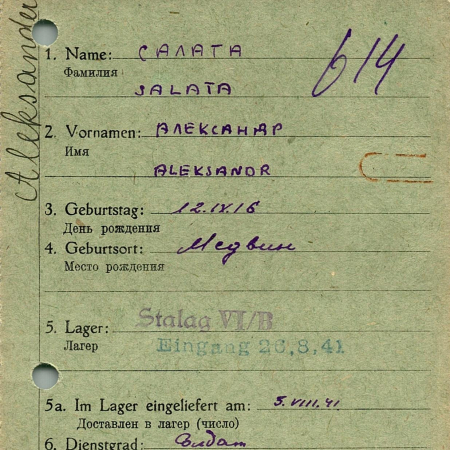 Aleksander
1. Name: САЛАТА
Фамилия
SALATA
614
2. Vornamen: АЛЕКСАНДР
Имя
ALEKSANDR
3. Geburtstag: 12.IV.16
День рождения
4. Geburtsort: Медвин
Место рождения
5. Lager: Stalag VI/B
Лагер
Eingang 26.8.41
5a. Im Lager eingeliefert am: 5.VIII.41
Доставлен в лагер (число)
6. Dienstgrad: Солдат